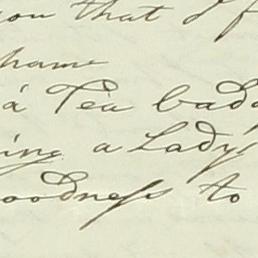 you that I f
hame
á Tea bad
ing a Lady's
oodness to